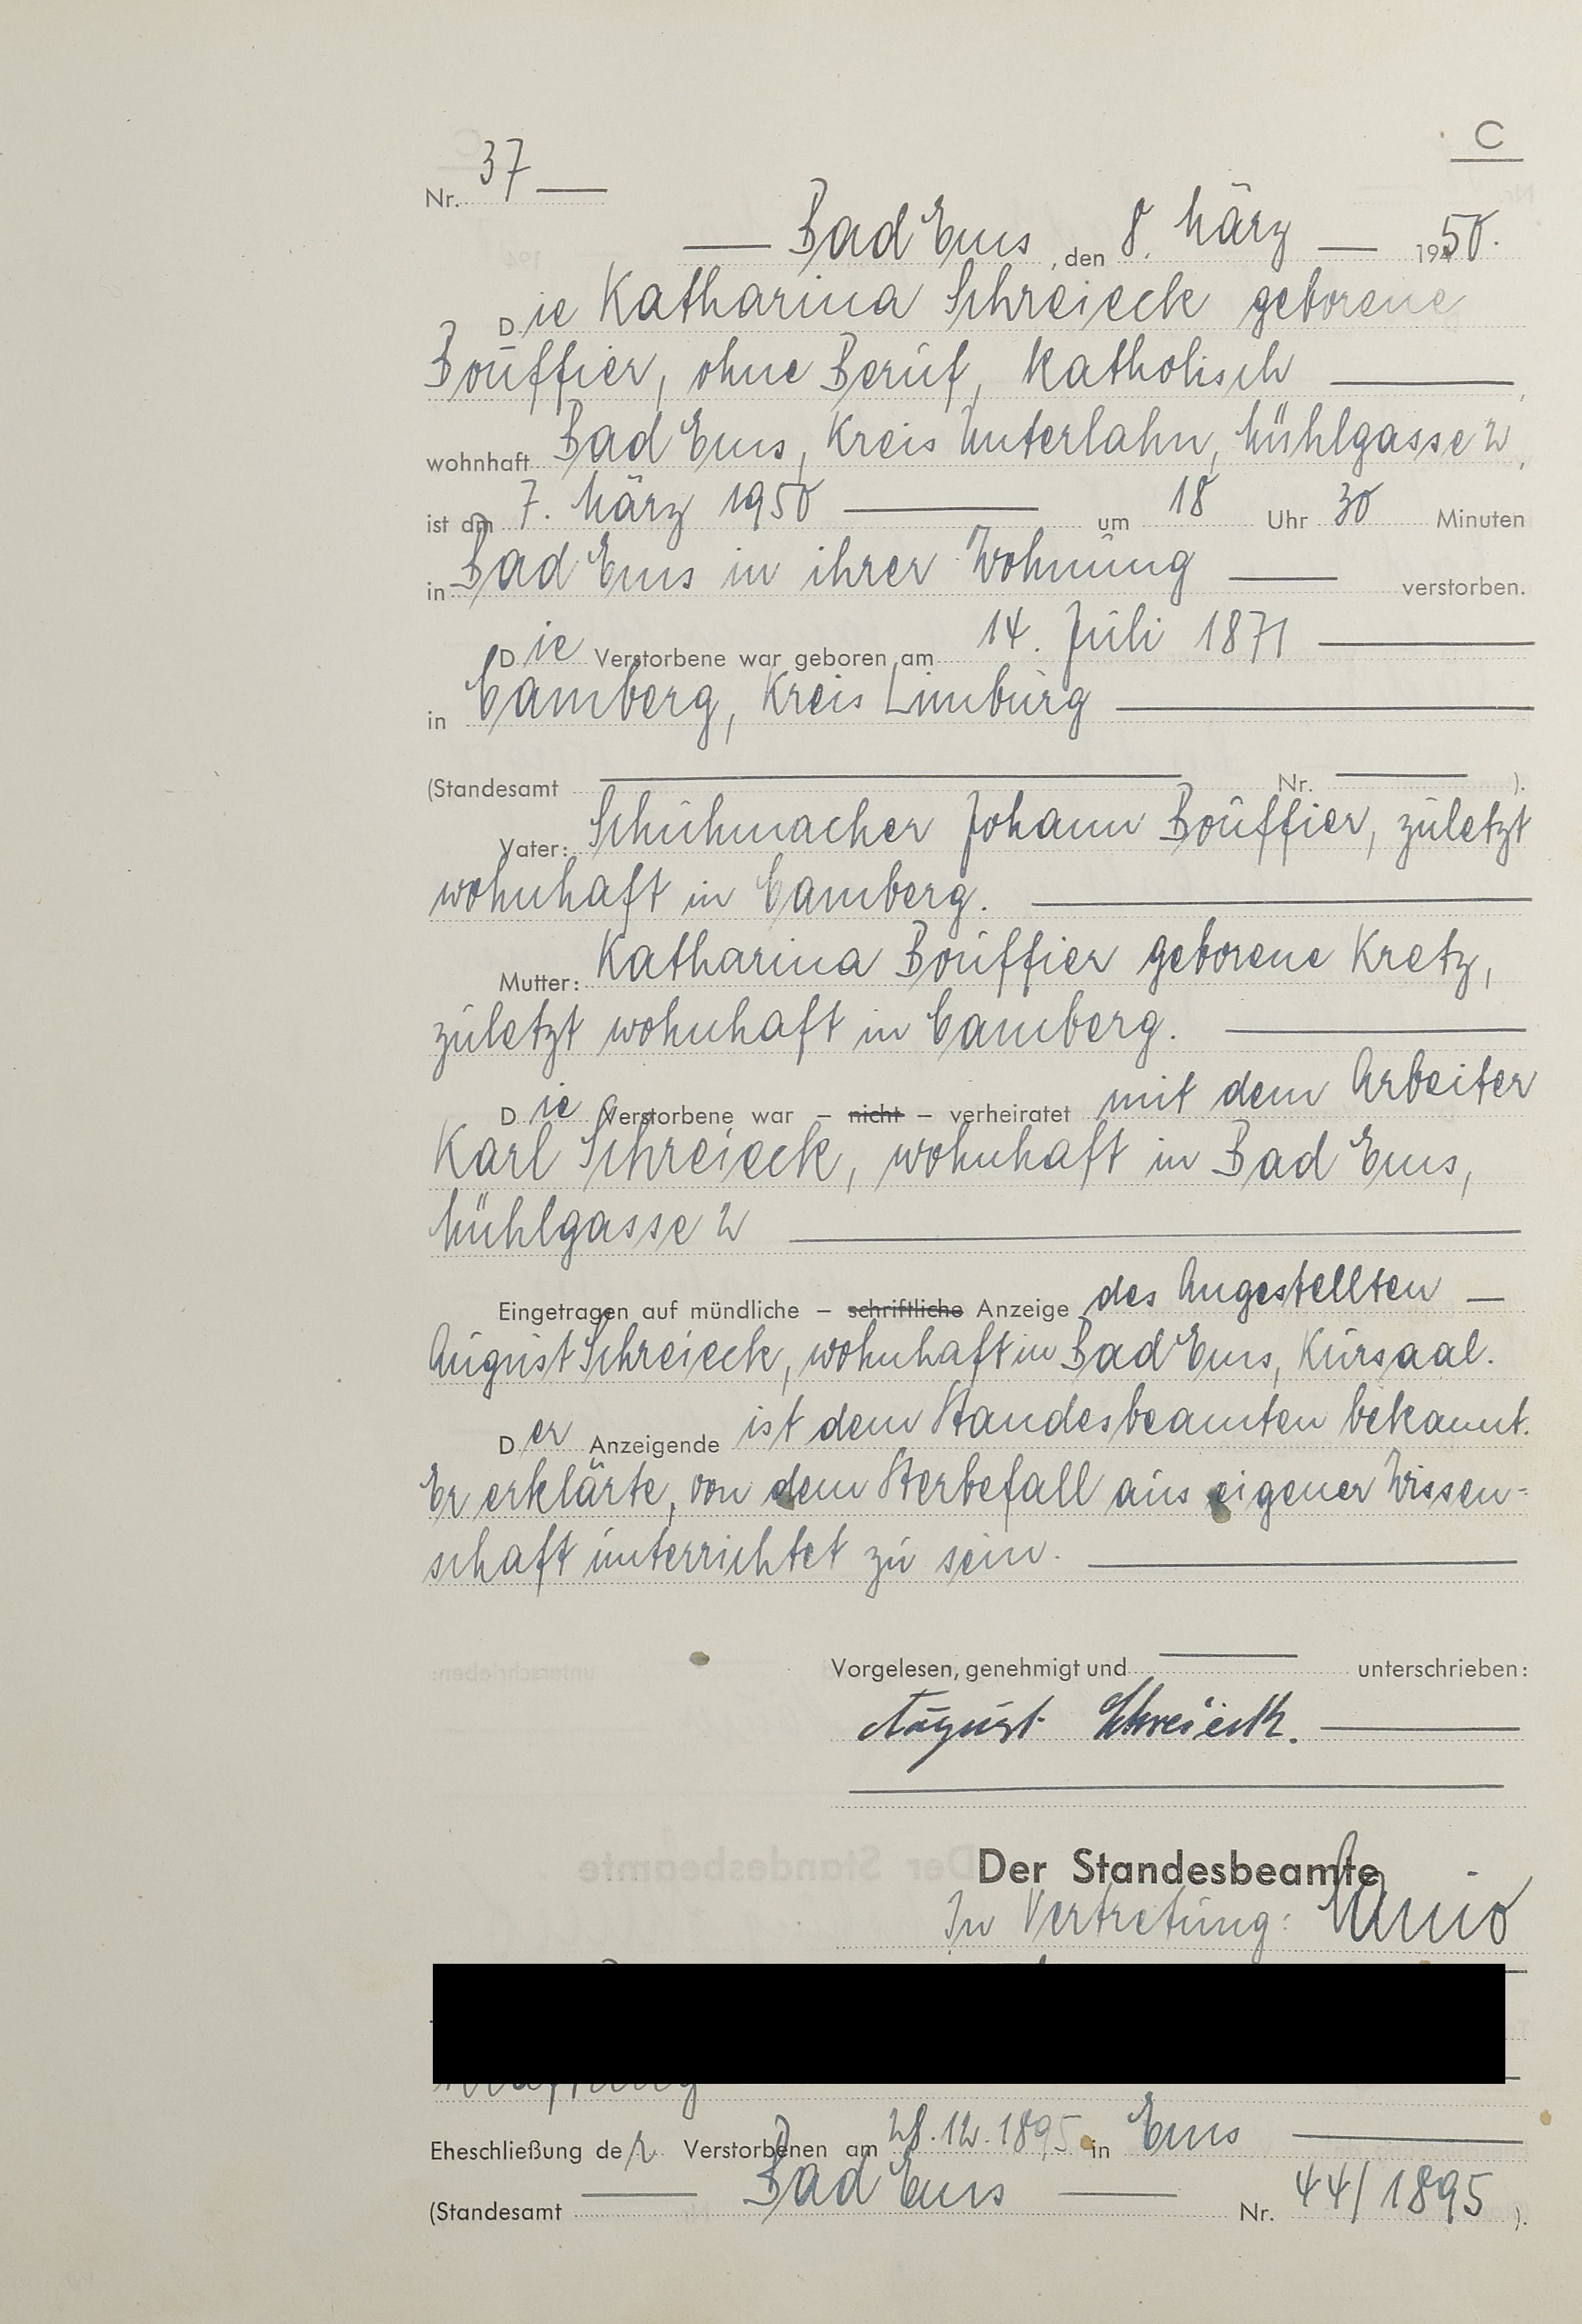 C
Nr. 37
Bad Ems, den 8. März 1950.
Die Katharina Schreieck geborene
Bouffier, ohne Beruf, katholisch
wohnhaft Bad Ems, Kreis Unterlahn, Mühlgasse 2,
ist am 7. März 1950 um 18 Uhr 30 Minuten
in Bad Ems in ihrer Wohnung verstorben.
Die Verstorbene war geboren am 14. Juli 1871
in Camberg, Kreis Limburg
(Standesamt Nr. ).
Vater: Schuhmacher Johann Bouffier, zuletzt
wohnhaft in Camberg.
Mutter: Katharina Bouffier geborene Kretz,
zuletzt wohnhaft in Camberg.
Die Verstorbene war – nicht – verheiratet mit dem Arbeiter
Karl Schreieck, wohnhaft in Bad Ems,
Mühlgasse 2
Eingetragen auf mündliche – schriftliche Anzeige des Angestellten
August Schreieck, wohnhaft in Bad Ems, Kursaal.
Der Anzeigende ist dem Standesbeamten bekannt.
Er erklärte, von dem Sterbefall aus eigener Wissen-
schaft unterrichtet zu sein.
Vorgelesen, genehmigt und unterschrieben:
August Schreieck.
Der Standesbeamte
In Vertretung:
Eheschließung der Verstorbenen am 28.12.1895 in Ems
(Standesamt Bad Ems Nr. 44/1895 ).